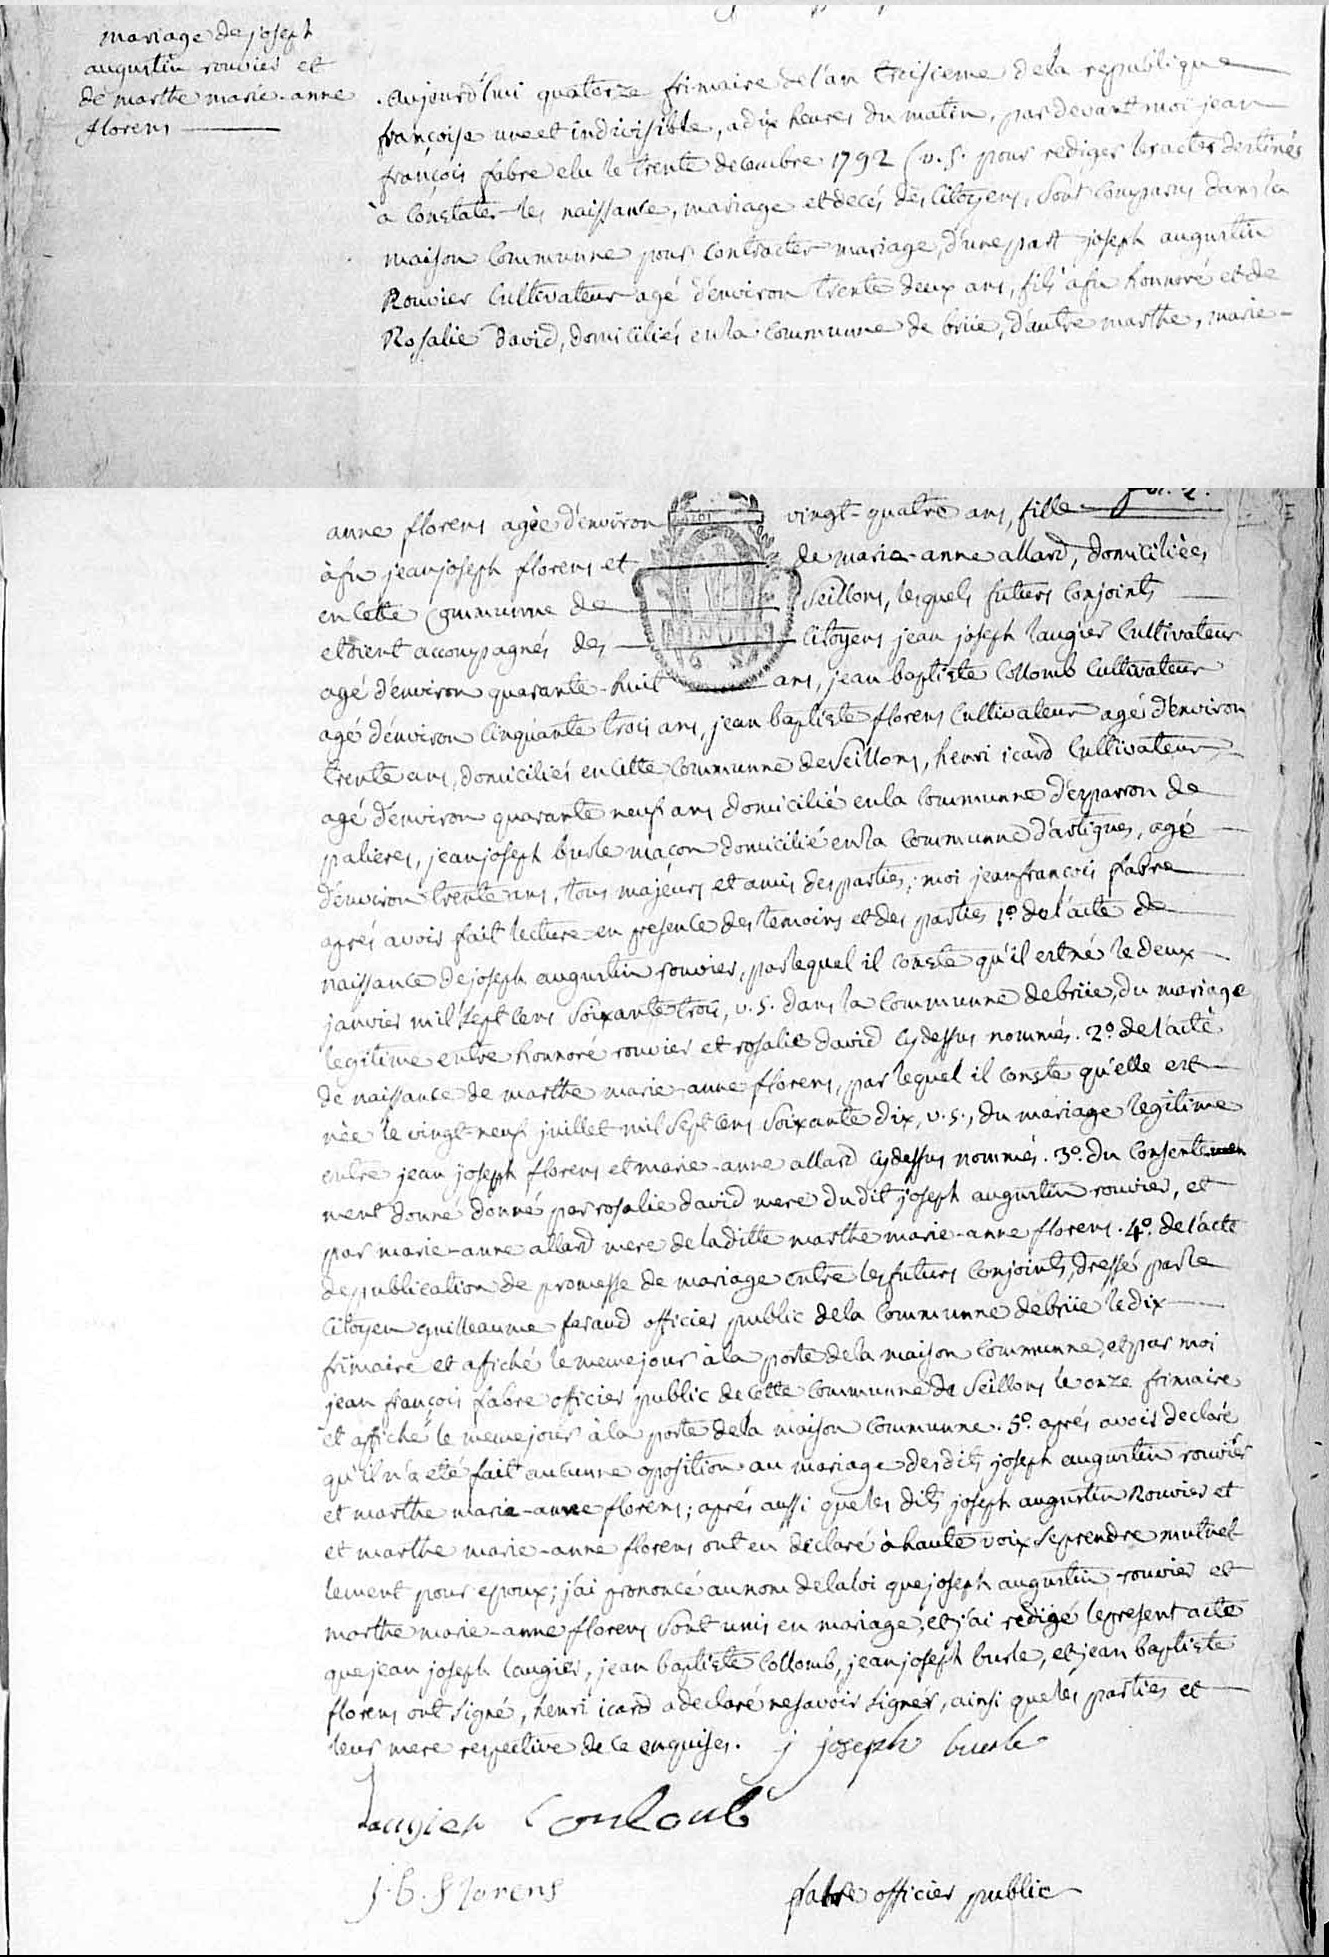 mariage de joseph
augustin rouvier et
de marthe marie-anne
florens
aujourd'hui quatorze frimaire de l'an troisieme de la republique
françoise une et indivisible, a dix heures du matin, par devant moi jean
françois fabre elu le trente decembre 1792 (v.s. pour rediger les actes destinés
à constater les naissance, mariage et decés des citoyens, sont comparus dans la
maison communne pour contracter mariage, d'une part joseph augustin
Rouvier cultivateur agé d'environ trente deux ans, fils à fu honnoré et de
Rosalie david, domiciliés en la communne de briie, d'autre marthe, marie-
anne florens agée d'environ vingt-quatre ans, fille
à fu jean joseph florens et de marie-anne allard, domiciliées
en cette communne de Seillons, lesquels futurs conjoints
etoient accompagnés des citoyens jean joseph laugier cultivateur
agé d'environ quarante-huit ans, jean baptiste Collomb cultivateur
agé d'environ cinquante trois ans, jean baptiste florens cultivateur agé d'environ
trente ans, domiciliés en cette communne de Seillons, henri icard cultivateur
agé d'environ quarante neuf ans domicilié en la communne d'esparron de
palieres, jean joseph burle maçon domicilié en la communne d'artigues, agé
d'environ trente ans, tous majeurs et amis des parties; moi jean françois fabre
aprés avoir fait lecture en presence des temoins et des parties 1.º de l'acte de
naissance de joseph augustin rouvier, par lequel il conste qu'il est né le deux
janvier mil sept cens soixante trois, v.s. dans la communne de briie, du mariage
legitime entre honnoré rouvier et rosalie david cy dessus nommés. 2.º de l'acte
de naissance de marthe marie-anne florens, par lequel il conste qu'elle est
née le vingt-neuf juillet mil sept cens soixante dix, v.s., du mariage legitime
entre jean joseph florens et marie-anne allard cy dessus nommés. 3.º du consente
ment donné donné par rosalie david mere du dit joseph augustin rouvier, et
par marie-anne allard mere de la ditte marthe marie-anne florens. 4.º de l'acte
de publication de promesse de mariage entre les futurs conjoints, dressé par le
citoyen guilleaume feraud officier public de la communne de briie le dix
frimaire et affiché le meme jour à la porte de la maison communne, et par moi
jean françois fabre officier public de cette communne de Seillons le onze frimaire
et affiché le meme jour à la porte de la maison communne. 5.º aprés avoir declaré
qu'il n'a eté fait aucunne oposition au mariage des dits joseph augustin rouvier
et marthe marie-anne florens; aprés aussi que les dits joseph augustin Rouvier et
et marthe marie-anne florens ont eu declaré à haute voix se prendre mutuel
lement pour epoux; j'ai prononcé au nom de la loi que joseph augustin rouvier et
marthe marie-anne florens sont unis en mariage, et j'ai redigé le present acte
que jean joseph laugier, jean baptiste Collomb, jean joseph burle, et jean baptiste
florens ont signé, henri icard a declaré ne savoir signer, ainsi que les parties et
leur mere respective de ce enquises. j joseph burle
Laugier Couloub
j.b. florens fabre officier public